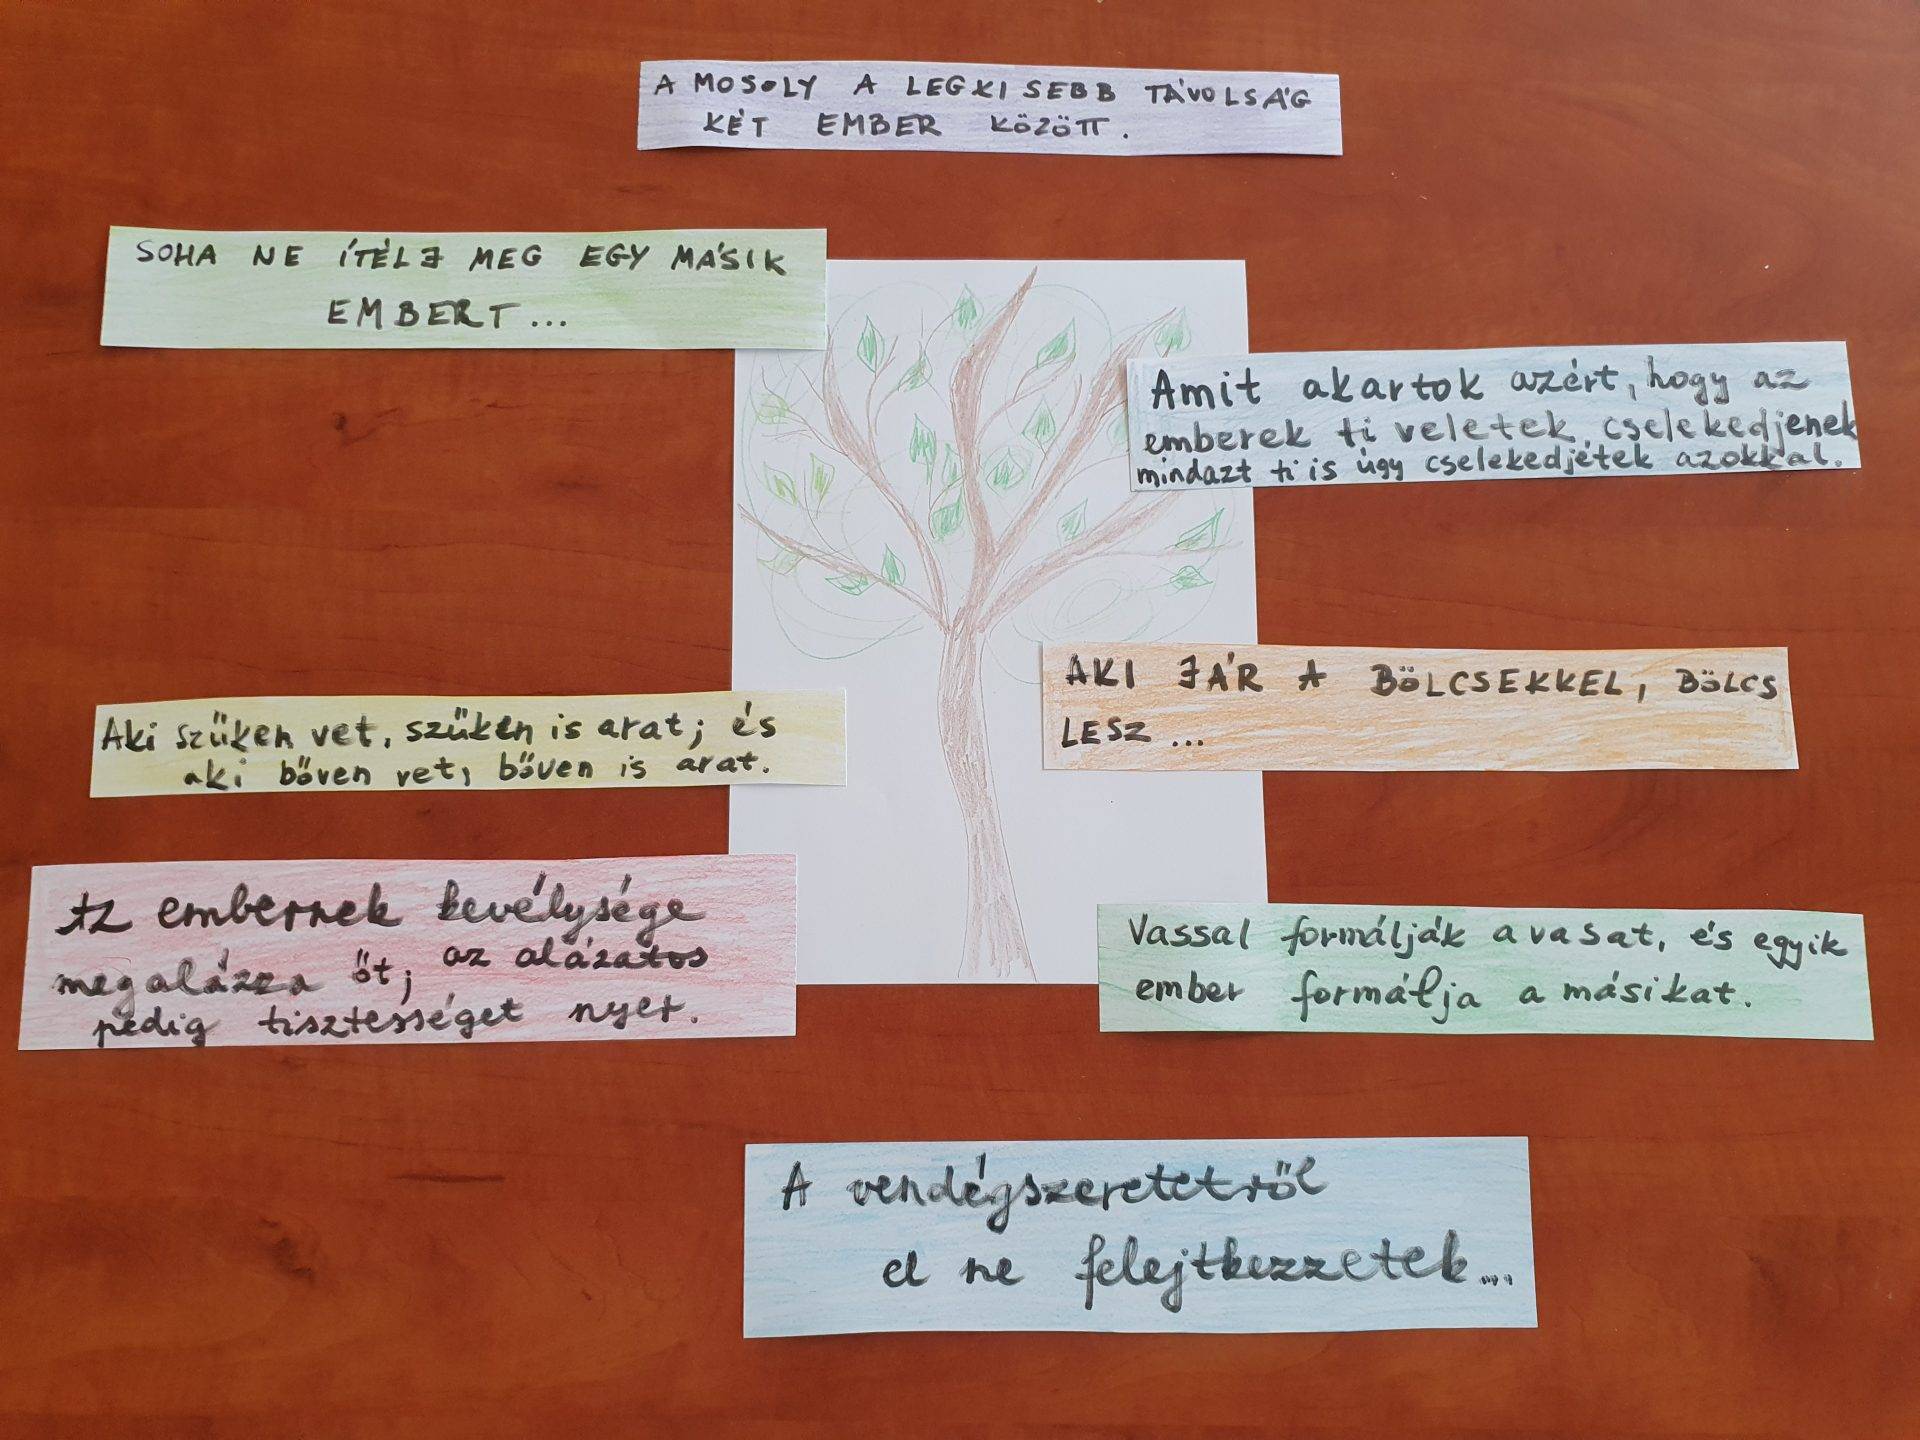 A MOSOLY A LEGKISEBB TÁVOLSÁG
KÉT EMBER KÖZÖTT.
SOHA NE ÍTÉLJ MEG EGY MÁSIK
EMBERT...
Amit akartok azért, hogy az
emberek ti veletek cselekedjenek
mindazt ti is úgy cselekedjétek azokkal.
AKI JÁR A BÖLCSEKKEL, BÖLCS
LESZ...
Aki szűken vet, szűken is arat; és
aki bőven vet, bőven is arat.
Az embernek kevélysége
megalázza őt; az alázatos
pedig tisztességet nyer.
Vassal formálják a vasat, és egyik
ember formálja a másikat.
A vendégszeretetről
el ne felejtkezzetek...